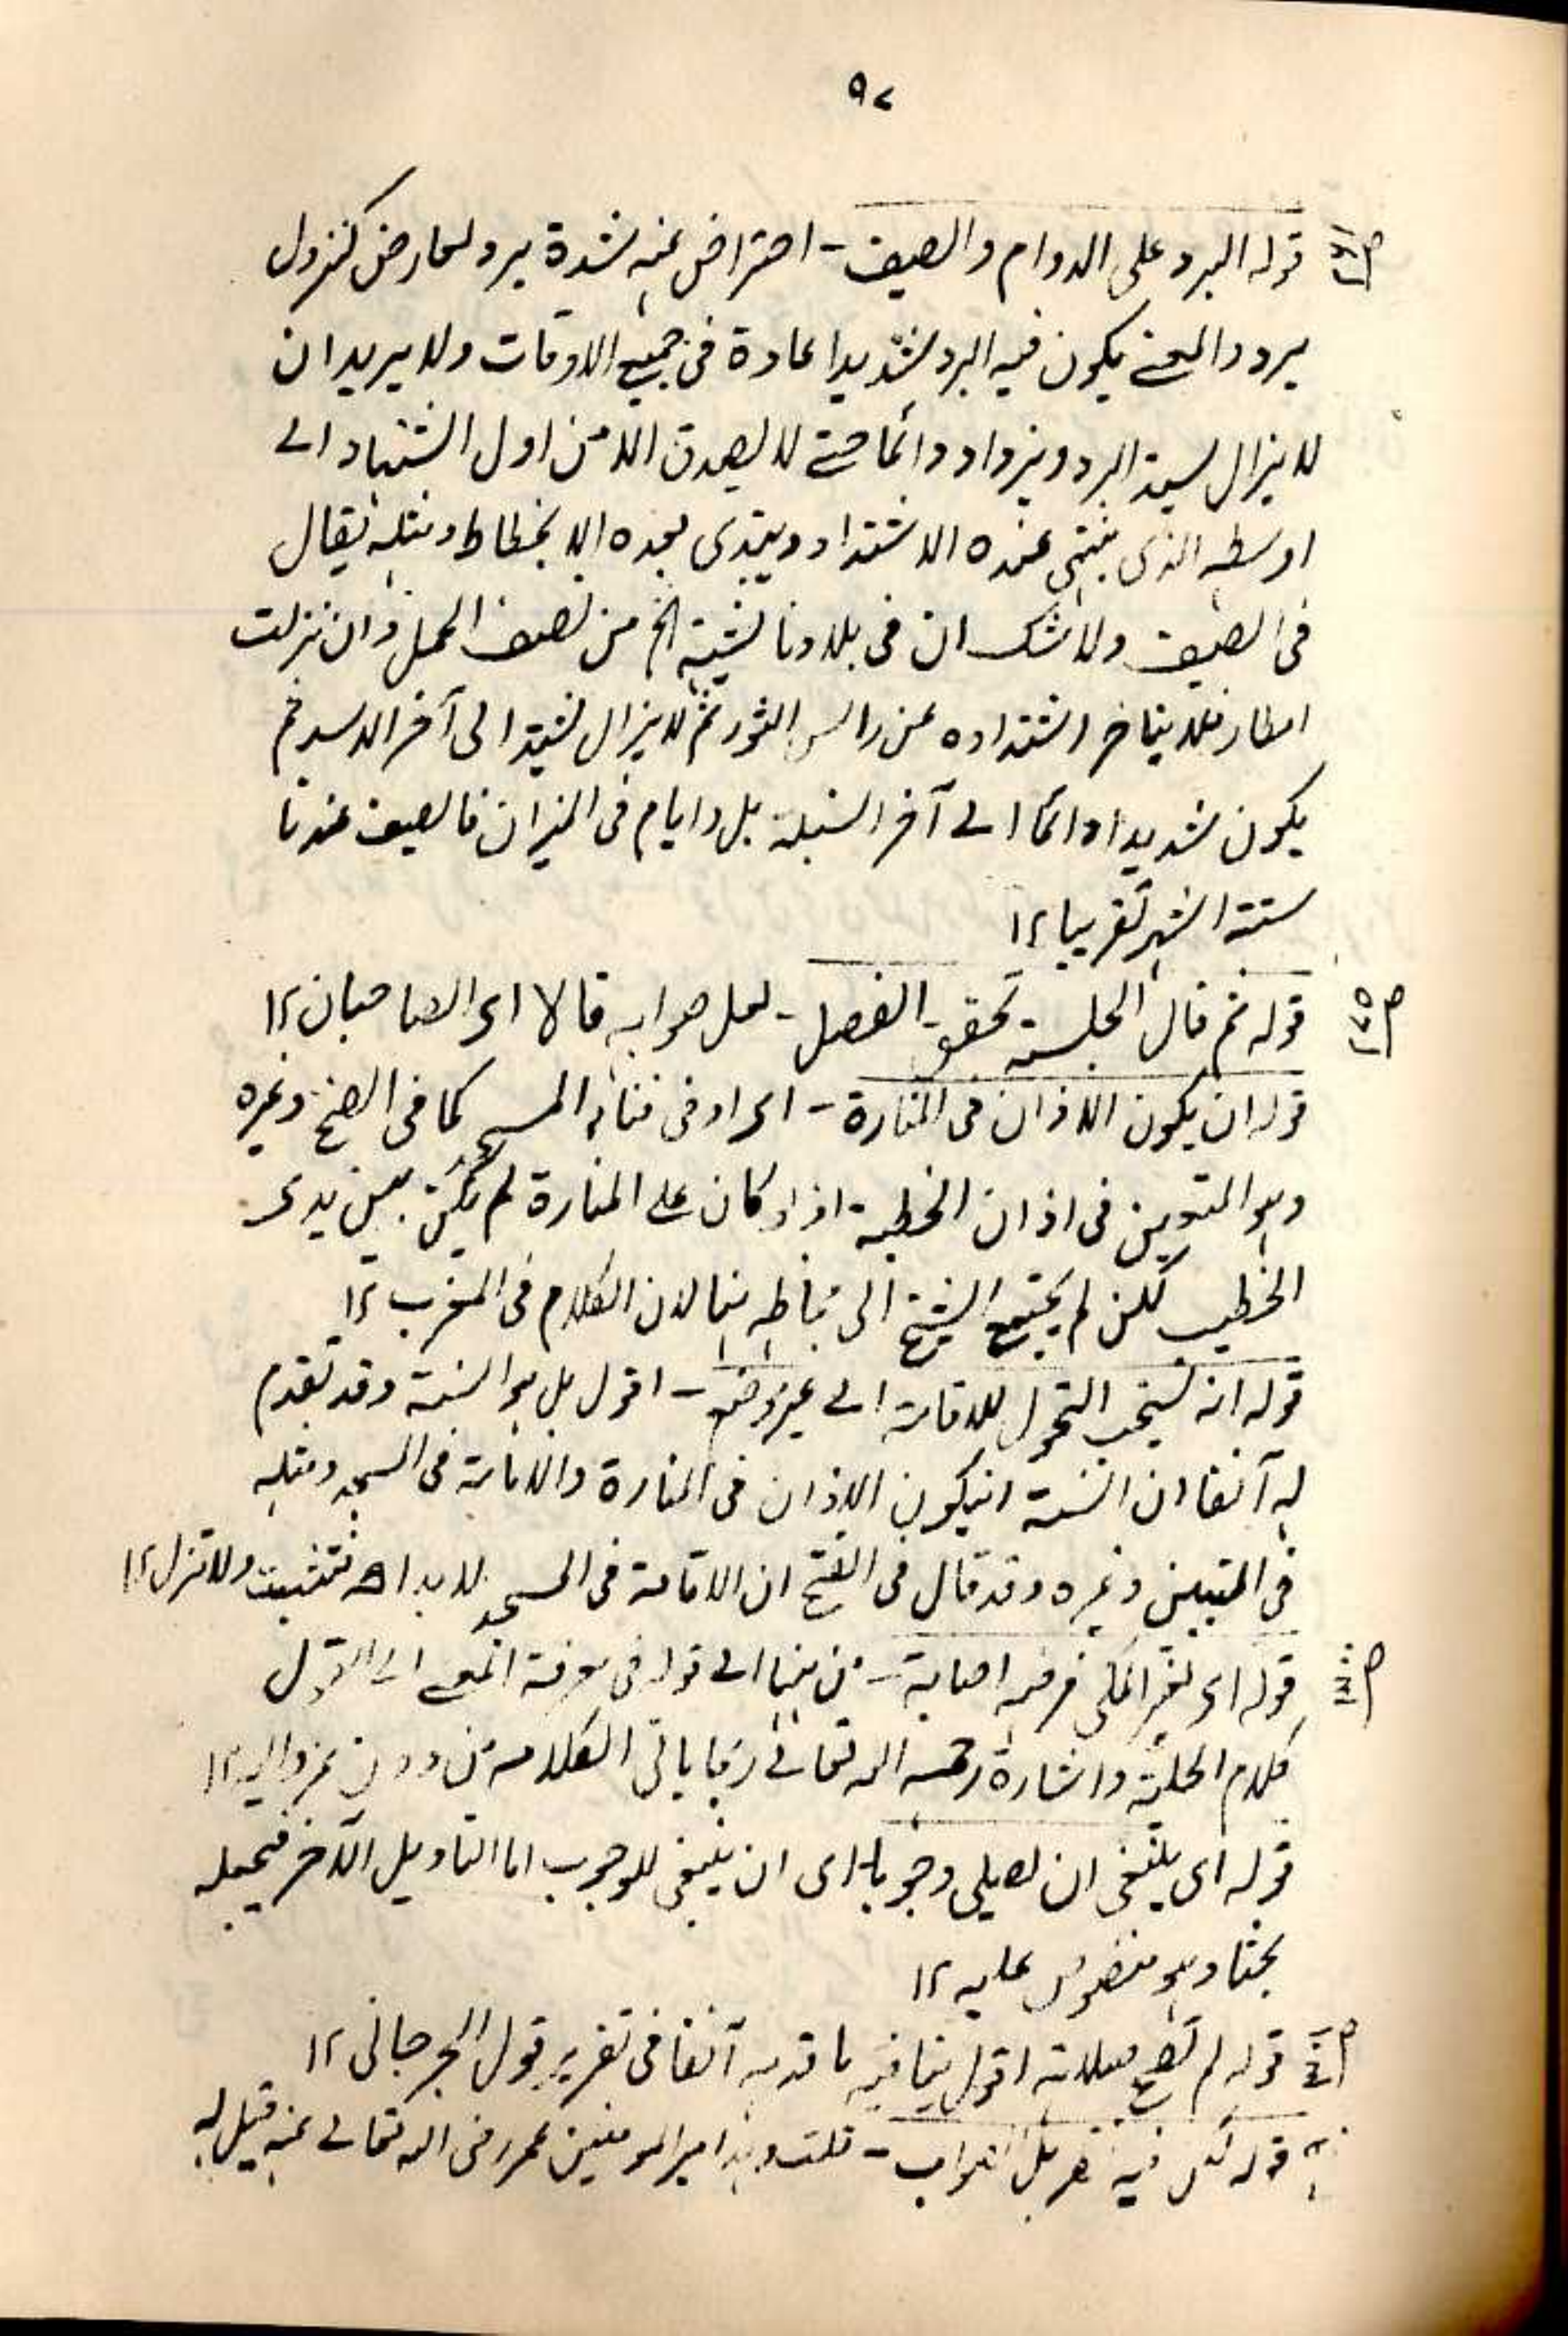 ٩٢
قوله البرد على الدوام والصيف - احتراض عنه لشدة برد لعارض كنزول
برد والمعنى يكون فيه البرد شديدا عادة فى جميع الاوقات ولا يريد ان
لا يزال يشتد البرد ويزداد دائما حتى لا يصدق الا من اول الشتاء الى
اوسطه الذى ينتهى عنده الاشتداد ويبتدى بعده الانحطاط ومثله يقال
فى الصيف ولا شك ان فى بلادنا يشتد الحر من نصف الحمل وان نزلت
امطار فلا يتاخر اشتداده عن راس الثور ثم لا يزال يشتد الى آخر الاسد ثم
يكون شديدا دائما الى آخر السنبلة بل وايام فى الميزان فالصيف عندنا
ستة اشهر تقريبا ١٢
قوله ثم قال الجلسة تحقق الفصل - لعل صوابه قالا اى الصاحبان ١٢
قوله ان يكون الاذان فى المنارة - اى او فى فنائه المسجد كما فى الفتح وغيره
وهو المتعين فى اذان الخطبة اذ لو كان على المنارة لم يكن بين يدى
الخطيب لكن لم يحتج الشيخ الى هنا لان الكلام فى المغرب ١٢
قوله انه يستحب التحول للاقامة الى غير موضعه - اقول بل هو السنة وقد تقدم
له آنفا ان السنة ان يكون الاذان فى المنارة والاقامة فى المسجد ومثله
فى التبيين وغيره وقد قال فى الفتح ان الاقامة فى المسجد لا بد اھ فتثبت ولا تزل ١٢
قوله اى لغير المكى فرضه اصابة - من هنا الى قوله فى معرفة الى القول
كلام الحلية واشارة رحمه الله تعالى الكلام من دون عزو اليه ١٢
قوله اى ينبغى ان يصلى وجوبا اى ان ينبغى للوجوب اما التاويل الآخر فيجعله
بحثا وهو منصوص عليه ١٢
قوله لم تصح صلاته اقول ينافيه ما قدمه آنفا فى تقرير قول الجرجانى ١٢
قوله لكن فيه - قلت وهذا امير المومنين عمر رضى الله تعالى عنه قيل له